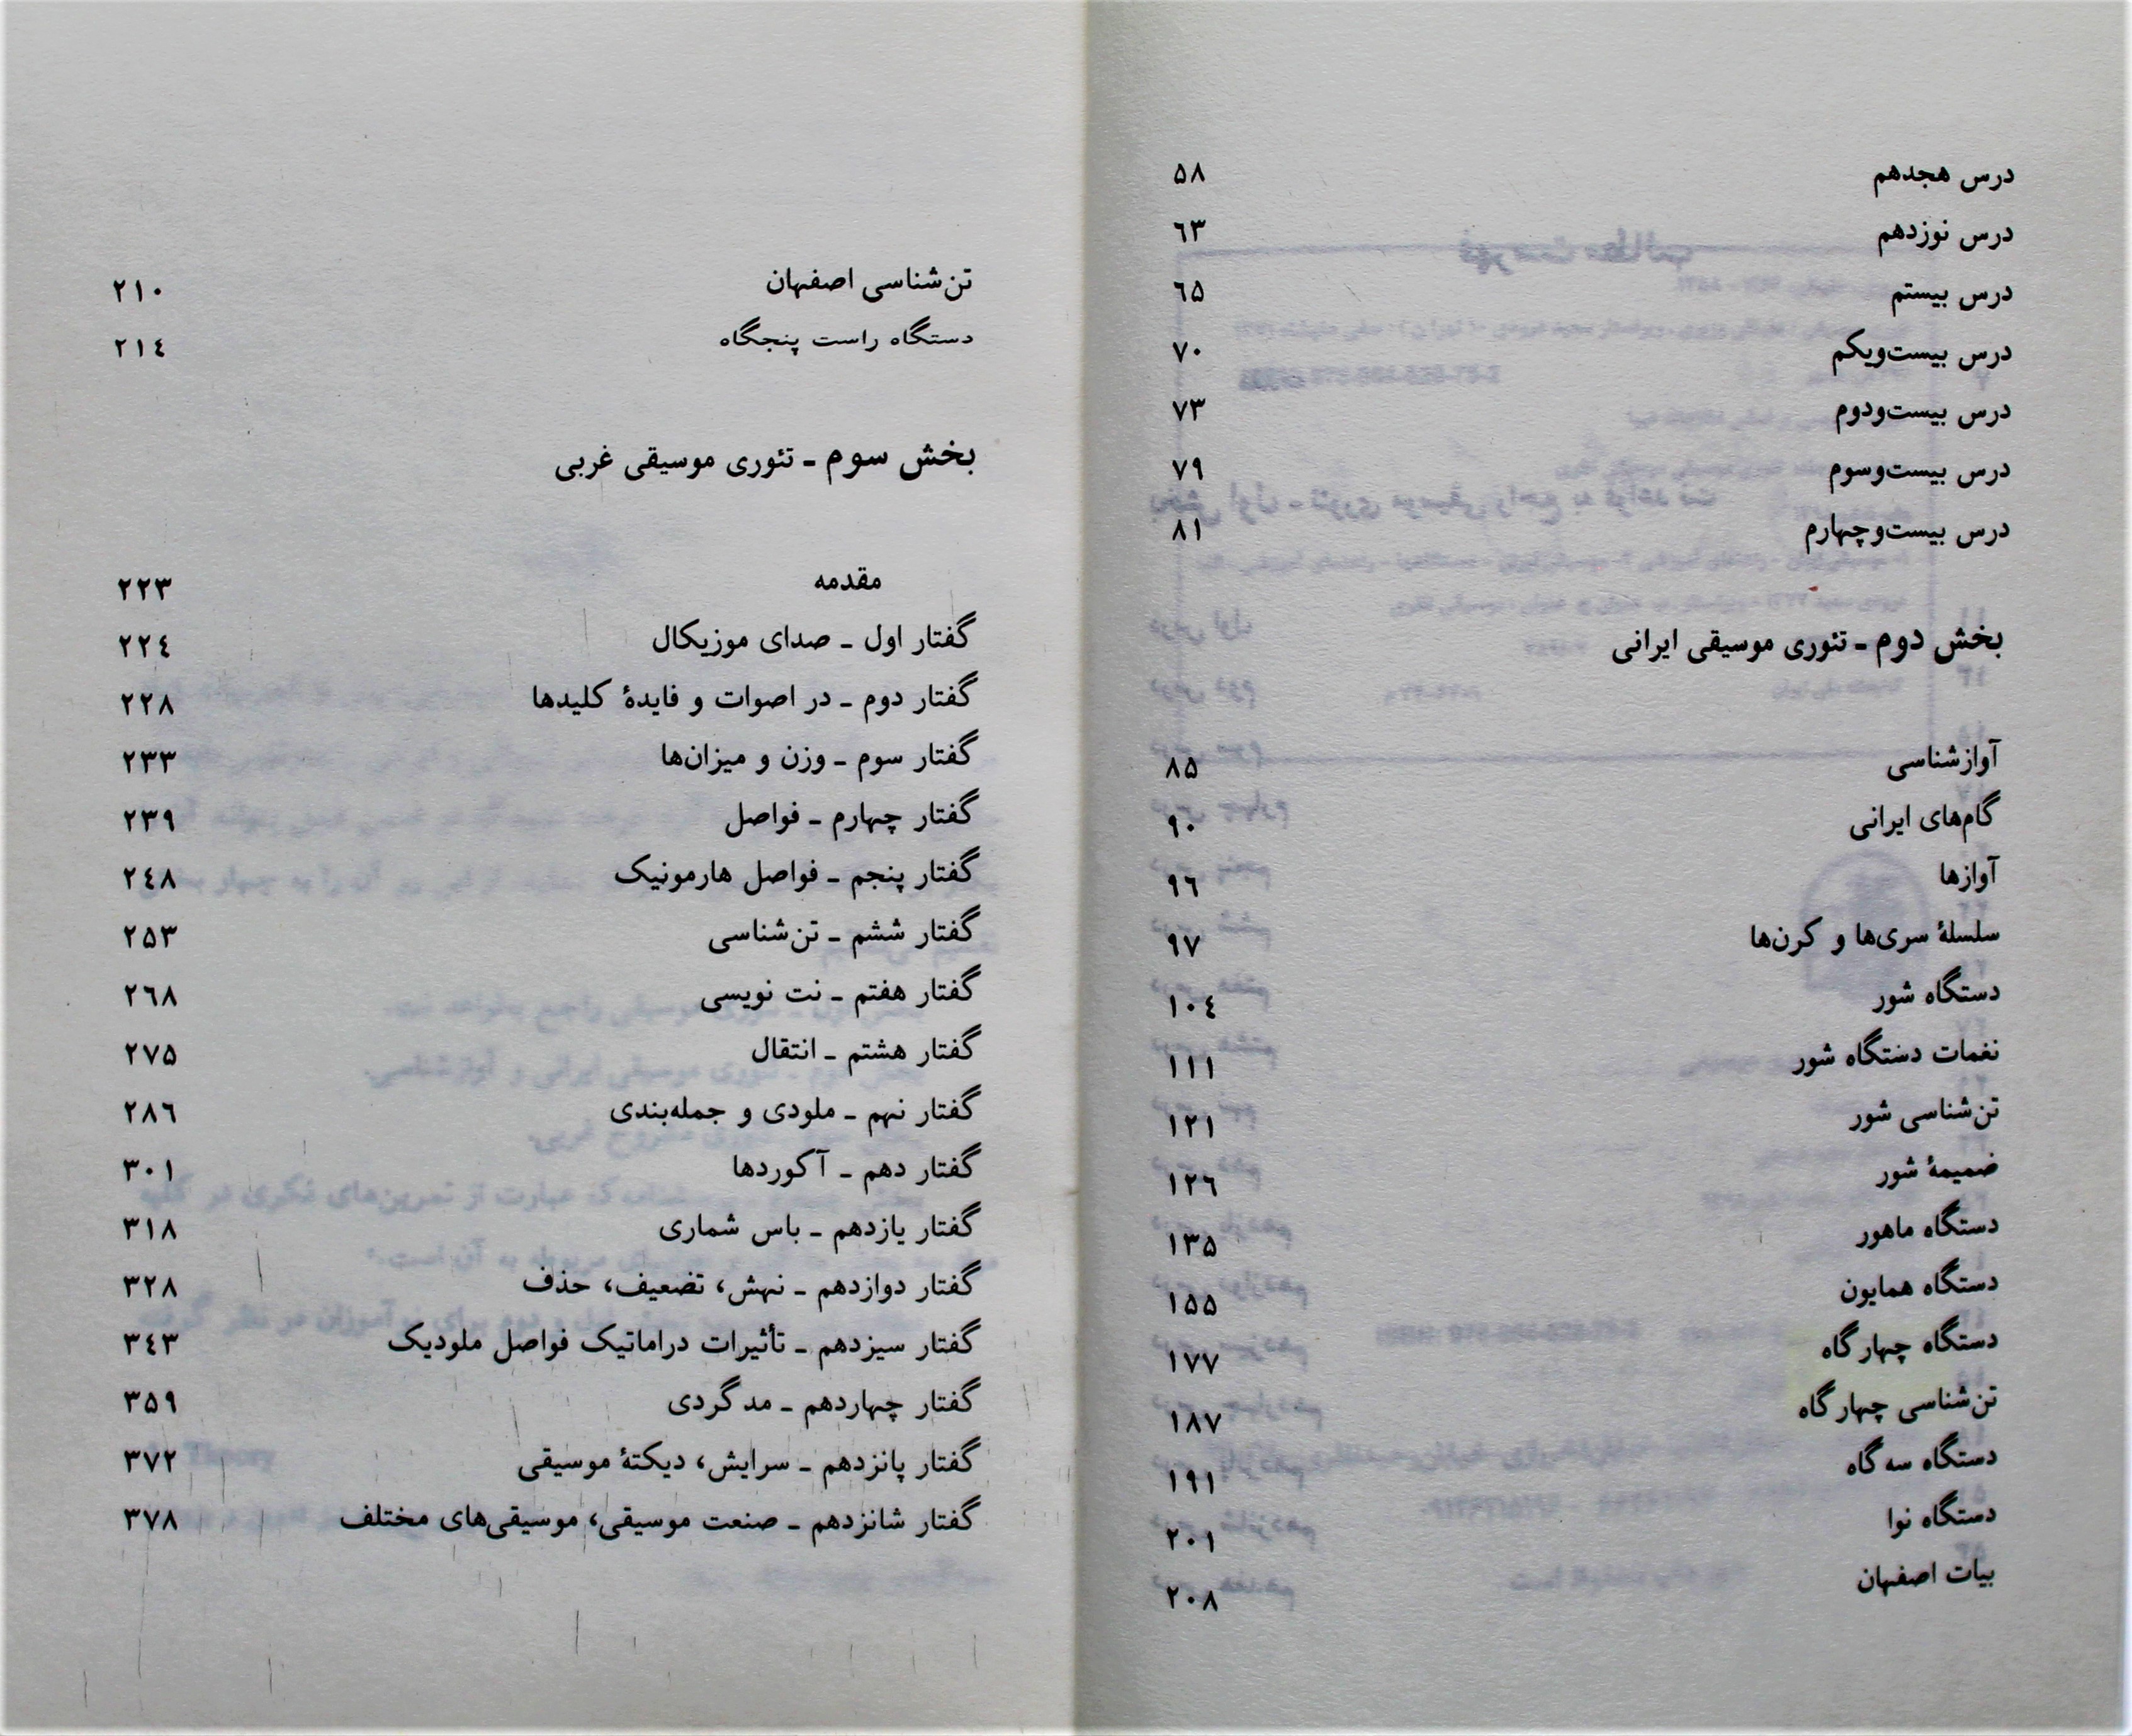 درس هجدهم ۵۸
درس نوزدهم ٦۳
درس بیستم ٦۵
درس بیست‌ویکم ۷۰
درس بیست‌ودوم ۷۳
درس بیست‌وسوم ۷۹
درس بیست‌وچهارم ۸۱
بخش دوم ـ تئوری موسیقی ایرانی
آوازشناسی ۸۵
گام‌های ایرانی ۹۰
آوازها ۹٦
سلسلهٔ سری‌ها و کرن‌ها ۹۷
دستگاه شور ۱۰٤
نغمات دستگاه شور ۱۱۱
تن‌شناسی شور ۱۲۱
ضمیمهٔ شور ۱۲٦
دستگاه ماهور ۱۳۵
دستگاه همایون ۱۵۵
دستگاه چهارگاه ۱۷۷
تن‌شناسی چهارگاه ۱۸۷
دستگاه سه‌گاه ۱۹۱
دستگاه نوا ۲۰۱
بیات اصفهان ۲۰۸
تن‌شناسی اصفهان ۲۱۰
دستگاه راست پنجگاه ۲۱٤
بخش سوم ـ تئوری موسیقی غربی
مقدمه ۲۲۳
گفتار اول ـ صدای موزیکال ۲۲٤
گفتار دوم ـ در اصوات و فایدهٔ کلیدها ۲۲۸
گفتار سوم ـ وزن و میزان‌ها ۲۳۳
گفتار چهارم ـ فواصل ۲۳۹
گفتار پنجم ـ فواصل هارمونیک ۲٤۸
گفتار ششم ـ تن‌شناسی ۲۵۳
گفتار هفتم ـ نت نویسی ۲٦۸
گفتار هشتم ـ انتقال ۲۷۵
گفتار نهم ـ ملودی و جمله‌بندی ۲۸٦
گفتار دهم ـ آکوردها ۳۰۱
گفتار یازدهم ـ باس شماری ۳۱۸
گفتار دوازدهم ـ نهش، تضعیف، حذف ۳۲۸
گفتار سیزدهم ـ تأثیرات دراماتیک فواصل ملودیک ۳٤۳
گفتار چهاردهم ـ مدگردی ۳۵۹
گفتار پانزدهم ـ سرایش، دیکتهٔ موسیقی ۳۷۲
گفتار شانزدهم ـ صنعت موسیقی، موسیقی‌های مختلف ۳۷۸